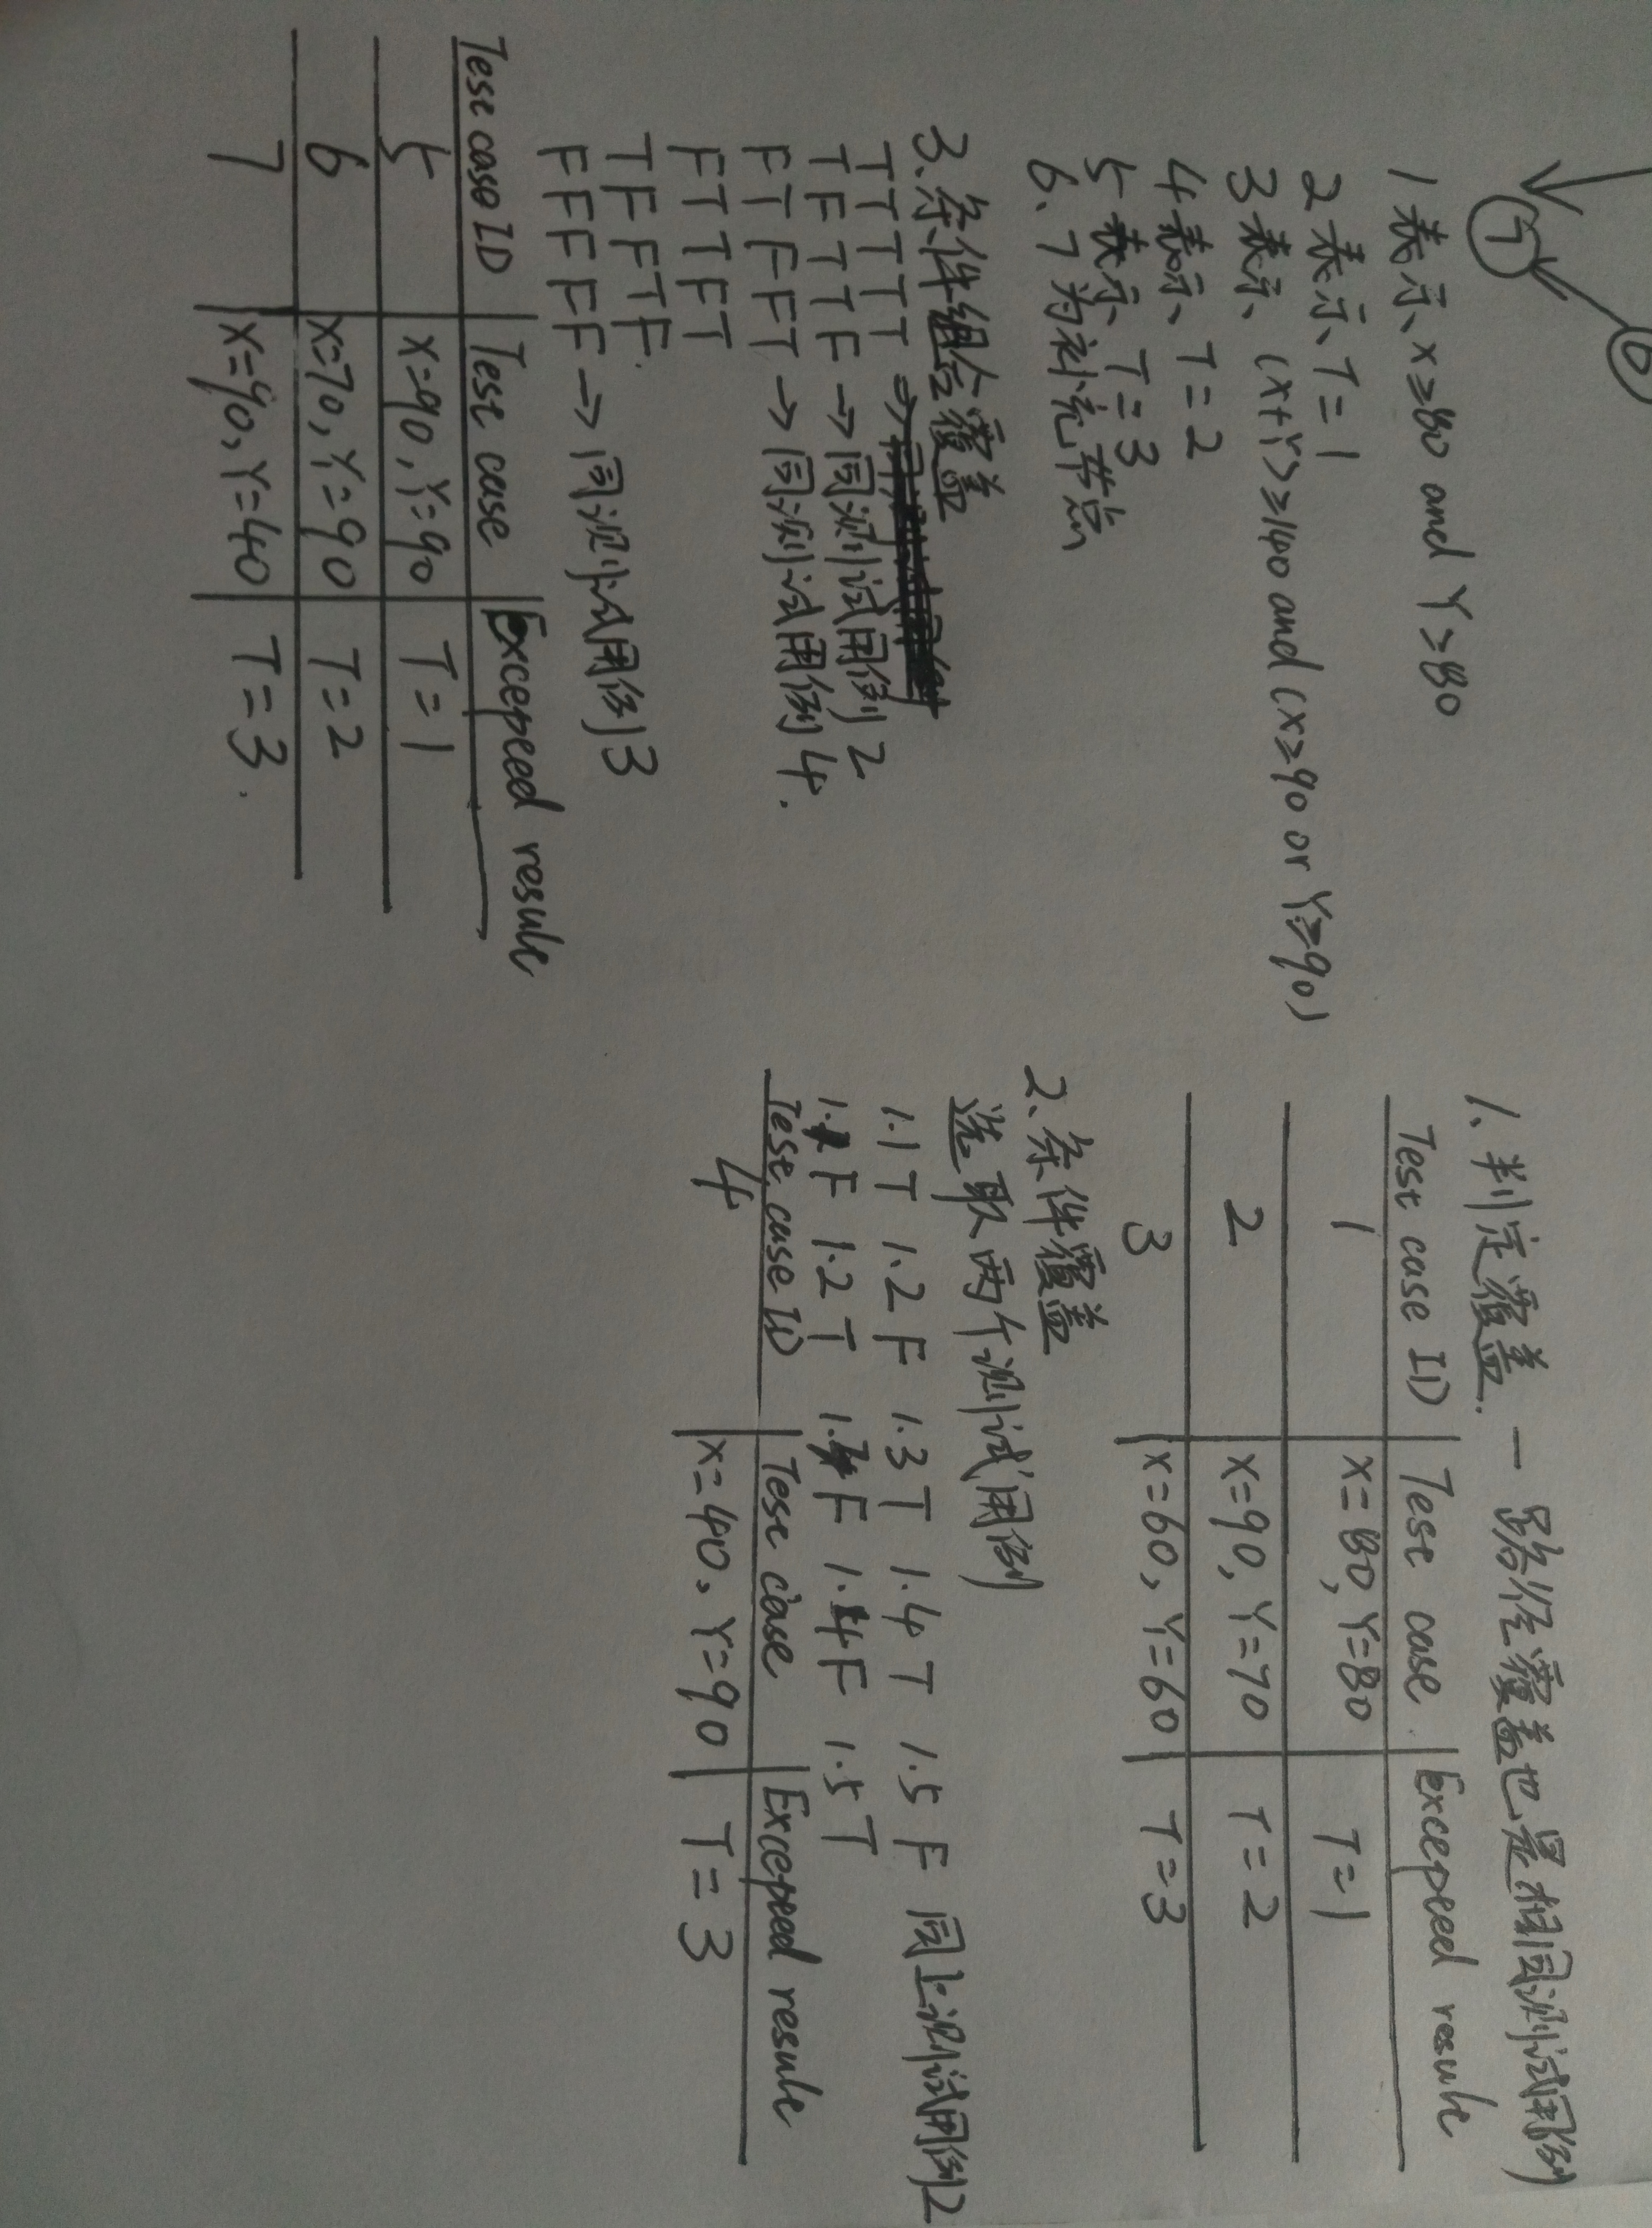 6
7
1表示x≥80 and Y≥80
2表示T=1
3表示(x+Y)≥140 and (x≥90 or Y≥90)
4表示T=2
5表示T=3
6、7为补充节点
3、条件组合覆盖
TTTTT →
TFTTF → 同测试用例2
FTFFT → 同测试用例4.
FTTFT
TFFTF.
FFFFF → 同测试用例3
Test case ID Test case Excepeed result
5 X=90,Y=90 T=1
6 X=70,Y=90 T=2
7 X=90,Y=40 T=3.
1、判定覆盖.— 路径覆盖也是相同测试用例
Test case ID Test case Excepeed result
1 X=80,Y=80 T=1
2 X=90,Y=70 T=2
3 X=60,Y=60 T=3
2、条件覆盖
选取两个测试用例
1.1 T 1.2 F 1.3 T 1.4 T 1.5 F 同上测试用例2
1.1 F 1.2 T 1.3 F 1.4 F 1.5 T
Test case ID Test case Excepeed result
4 X=40,Y=90 T=3